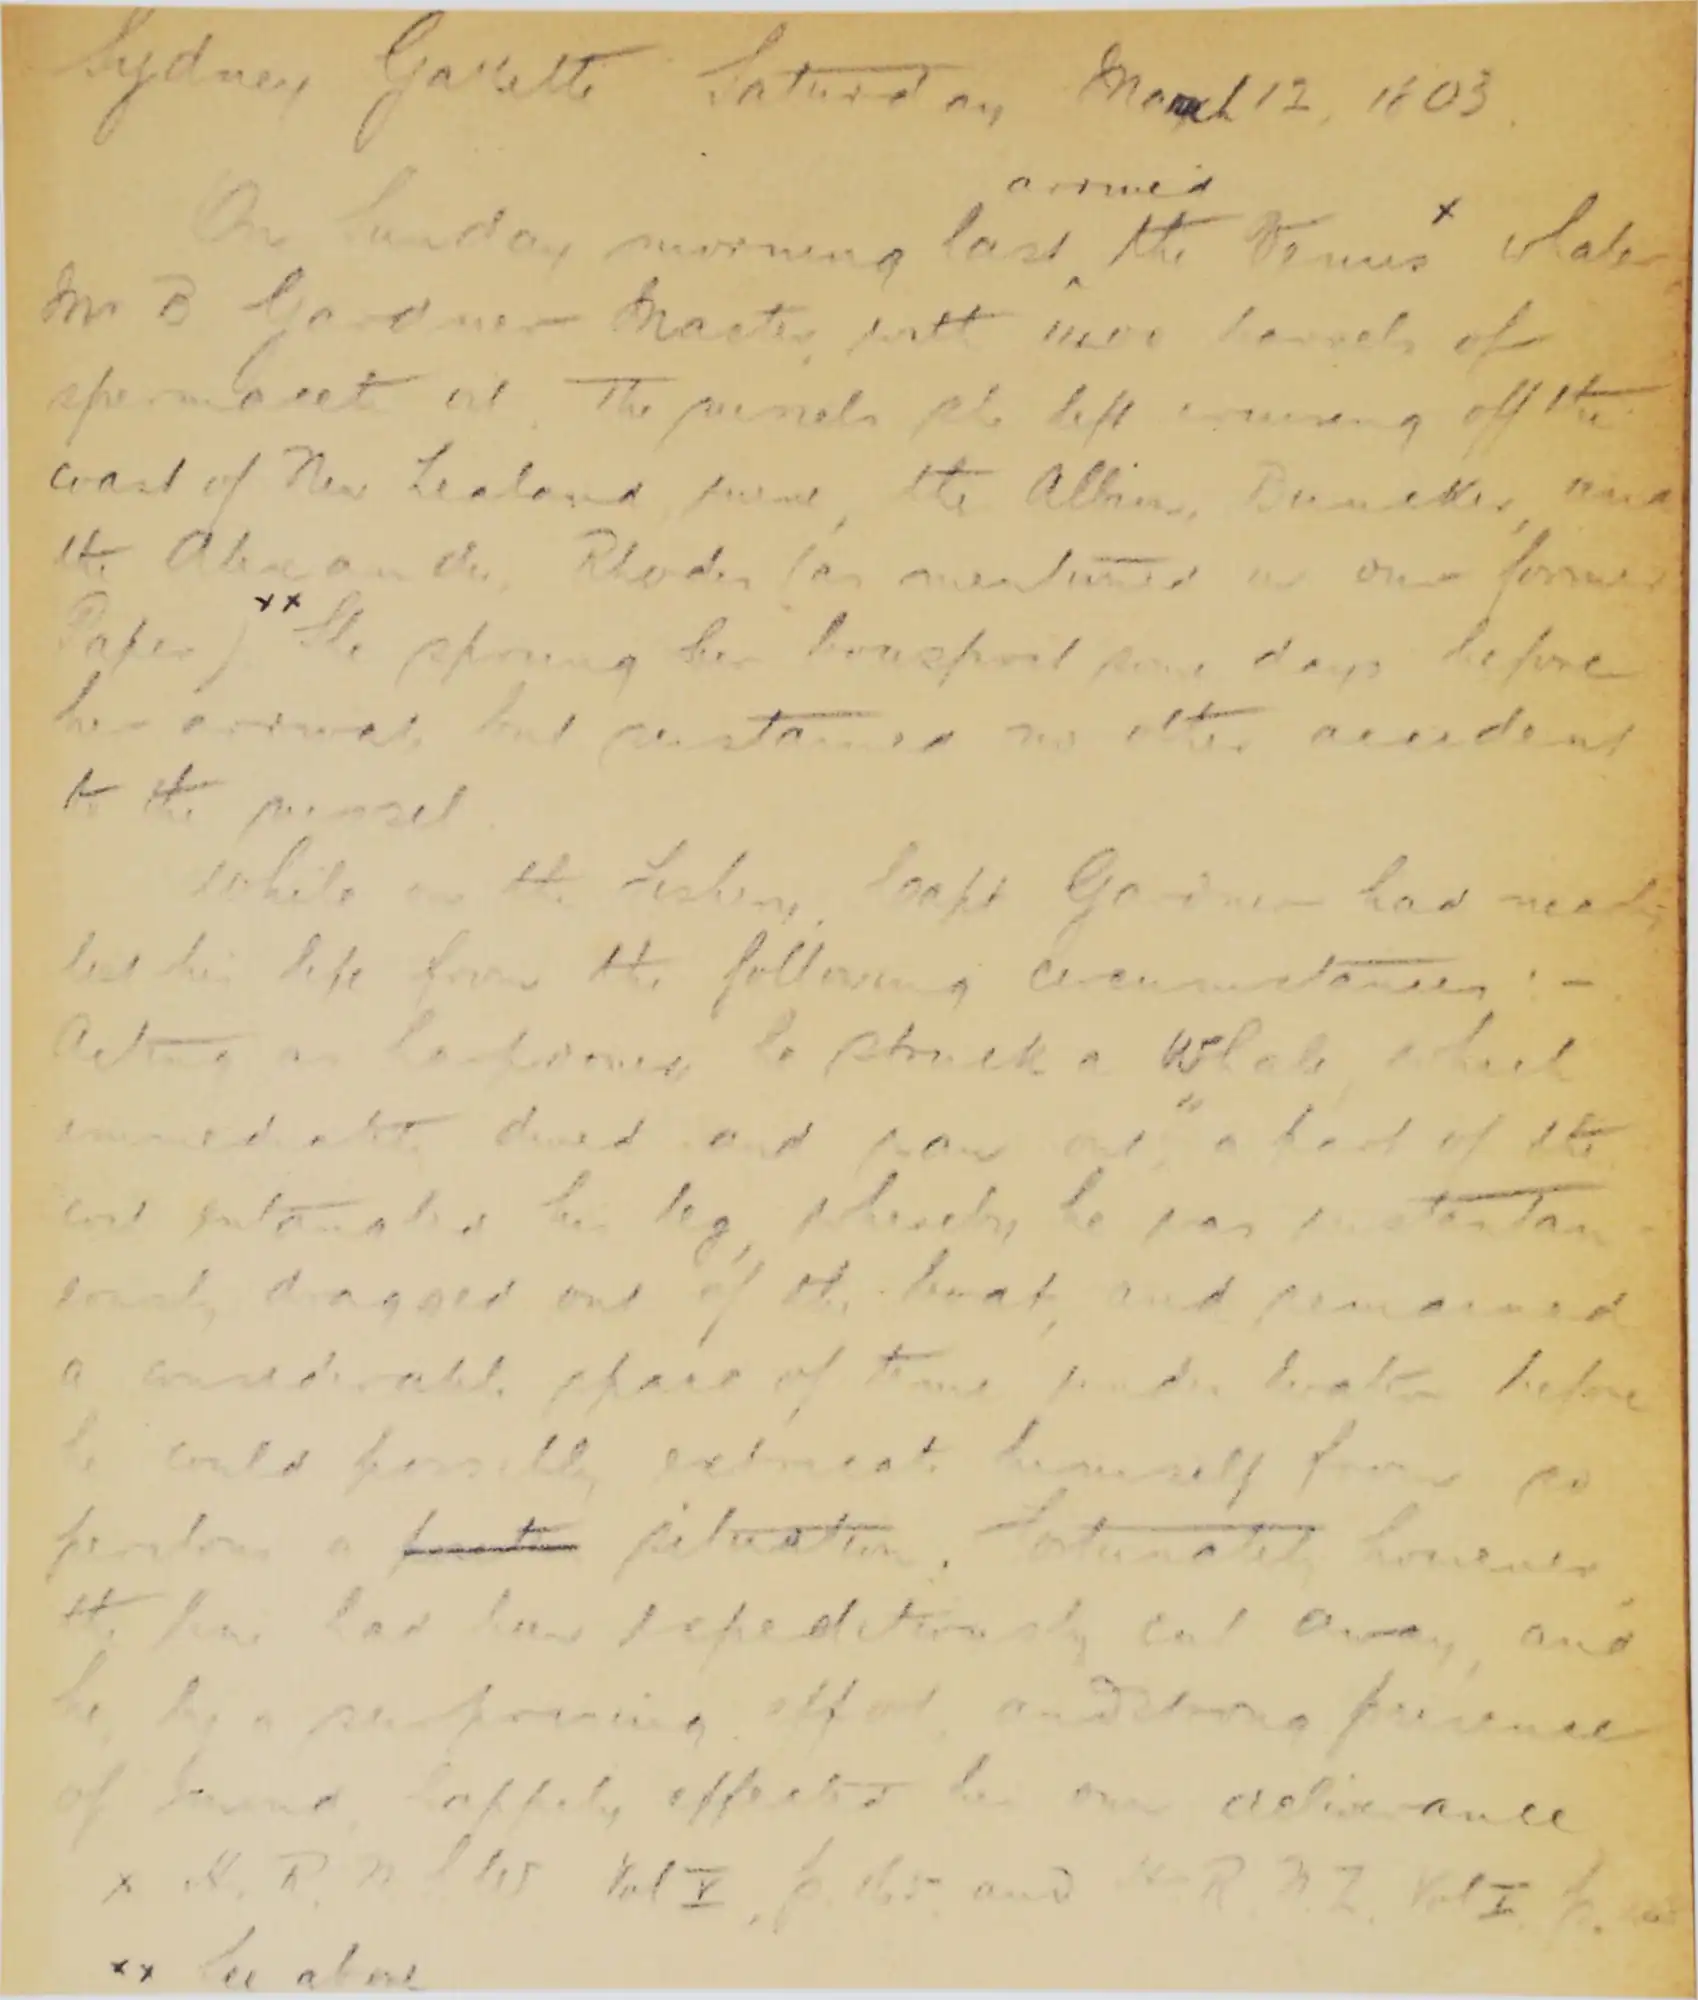 Sydney Gazette Saturday March 12, 1803.
arrived
On Sunday morning last ^ the Venus x whaler
Mr B Gardner Master, with barrels of
spermaceti oil. The vessels she left cruising off the
coast of New Zealand were, the Albion, Buncker, and
the Alexander, Rhodes (as mentioned in our former
Paper). xx She sprung her bowsprit some days before
her arrival, but sustained no other accident
to the vessel.
While on the Fishery, Capt Gardner had nearly
lost his life from the following circumstances :-
Acting as harpooner, he struck a Whale, which
immediately dived and ran out; a part of the
cord entangled his leg, whereby he was instantan-
eously dragged out of the boat, and remained
a considerable space of time under water before
he could possibly extricate himself from so
perilous a situation. Fortunately however,
the line had been expeditiously cut away, and
he, by a surprising effort, and strong presence
of mind, happily effected his own deliverance
x H. R. N S W Vol V, p. 165. and H. R. N. Z. Vol I. p.
xx See above